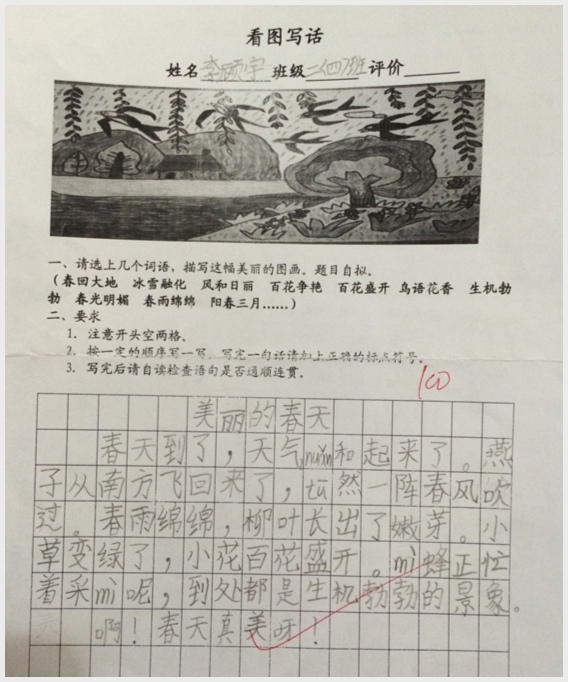 看图写话
姓名李硕宇 班级二(四)班 评价
一、请选上几个词语，描写这幅美丽的图画。题目自拟。
（春回大地 冰雪融化 风和日丽 百花争艳 百花盛开 鸟语花香 生机勃
勃 春光明媚 春雨绵绵 阳春三月……）
二、要求
1. 注意开头空两格。
2. 按一定的顺序写一写，写完一句话请加上正确的标点符号。
3. 写完后请自读检查语句是否通顺连贯。
100
美丽的春天
春天到了，天气nuǎn和起来了。燕
子从南方飞回来了，tū然一阵春风吹
过。春雨绵绵，柳叶长出了嫩芽。小
草变绿了，小花百花盛开。mì蜂正忙
着采mì呢，到处都是生机勃勃的景象。
啊！春天真美呀！